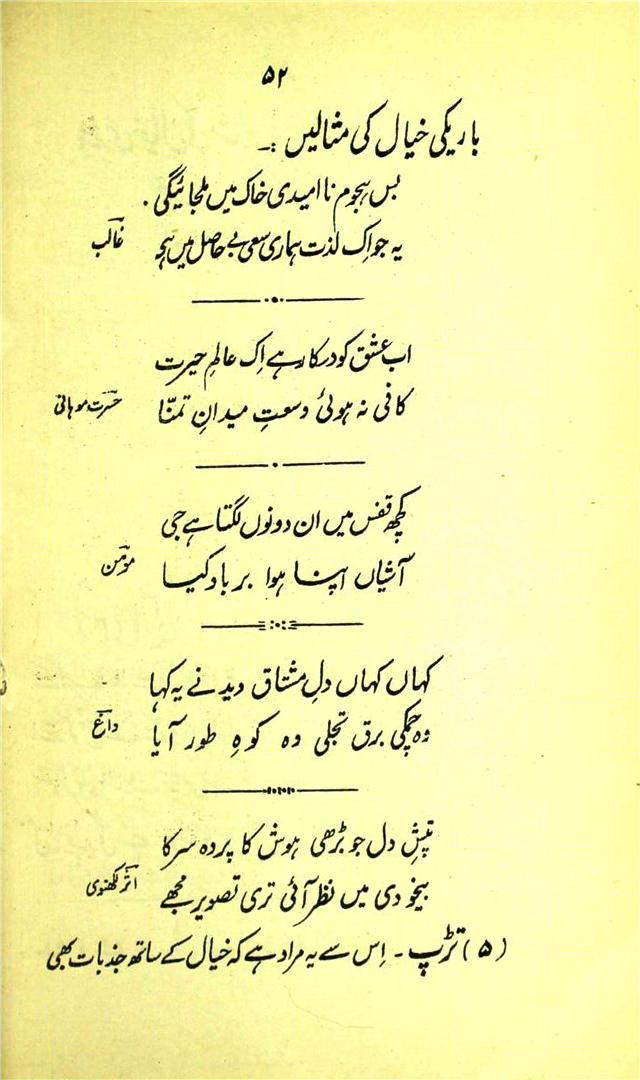 ۵۲
باریکی خیال کی مثالیں :۔
بس ہجوم نا امیدی خاک میں ملجائیگی .
یہ جو اِک لذت ہماری سعیِ بے حاصل میں ہے غالب
اب عشق کو درکار ہے اِک عالمِ حیرت
کافی نہ ہوئی وسعتِ میدانِ تمنّا حسرت موہانی
کچھ قفس میں ان دونوں لگتا ہے جی
آشیاں اپنا ہوا برباد کیا مومن
کہاں کہاں دلِ مشتاق دید نے یہ کہا
وہ چمکی برق تجلی وہ کوہِ طور آیا داغ
تپشِ دل جو بڑھی ہوش کا پردہ سرکا
بیخودی میں نظر آئی تری تصویر مجھے اثر لکھنوی
(۵) تڑپ ۔ اِس سے یہ مراد ہے کہ خیال کے ساتھ جذبات بھی